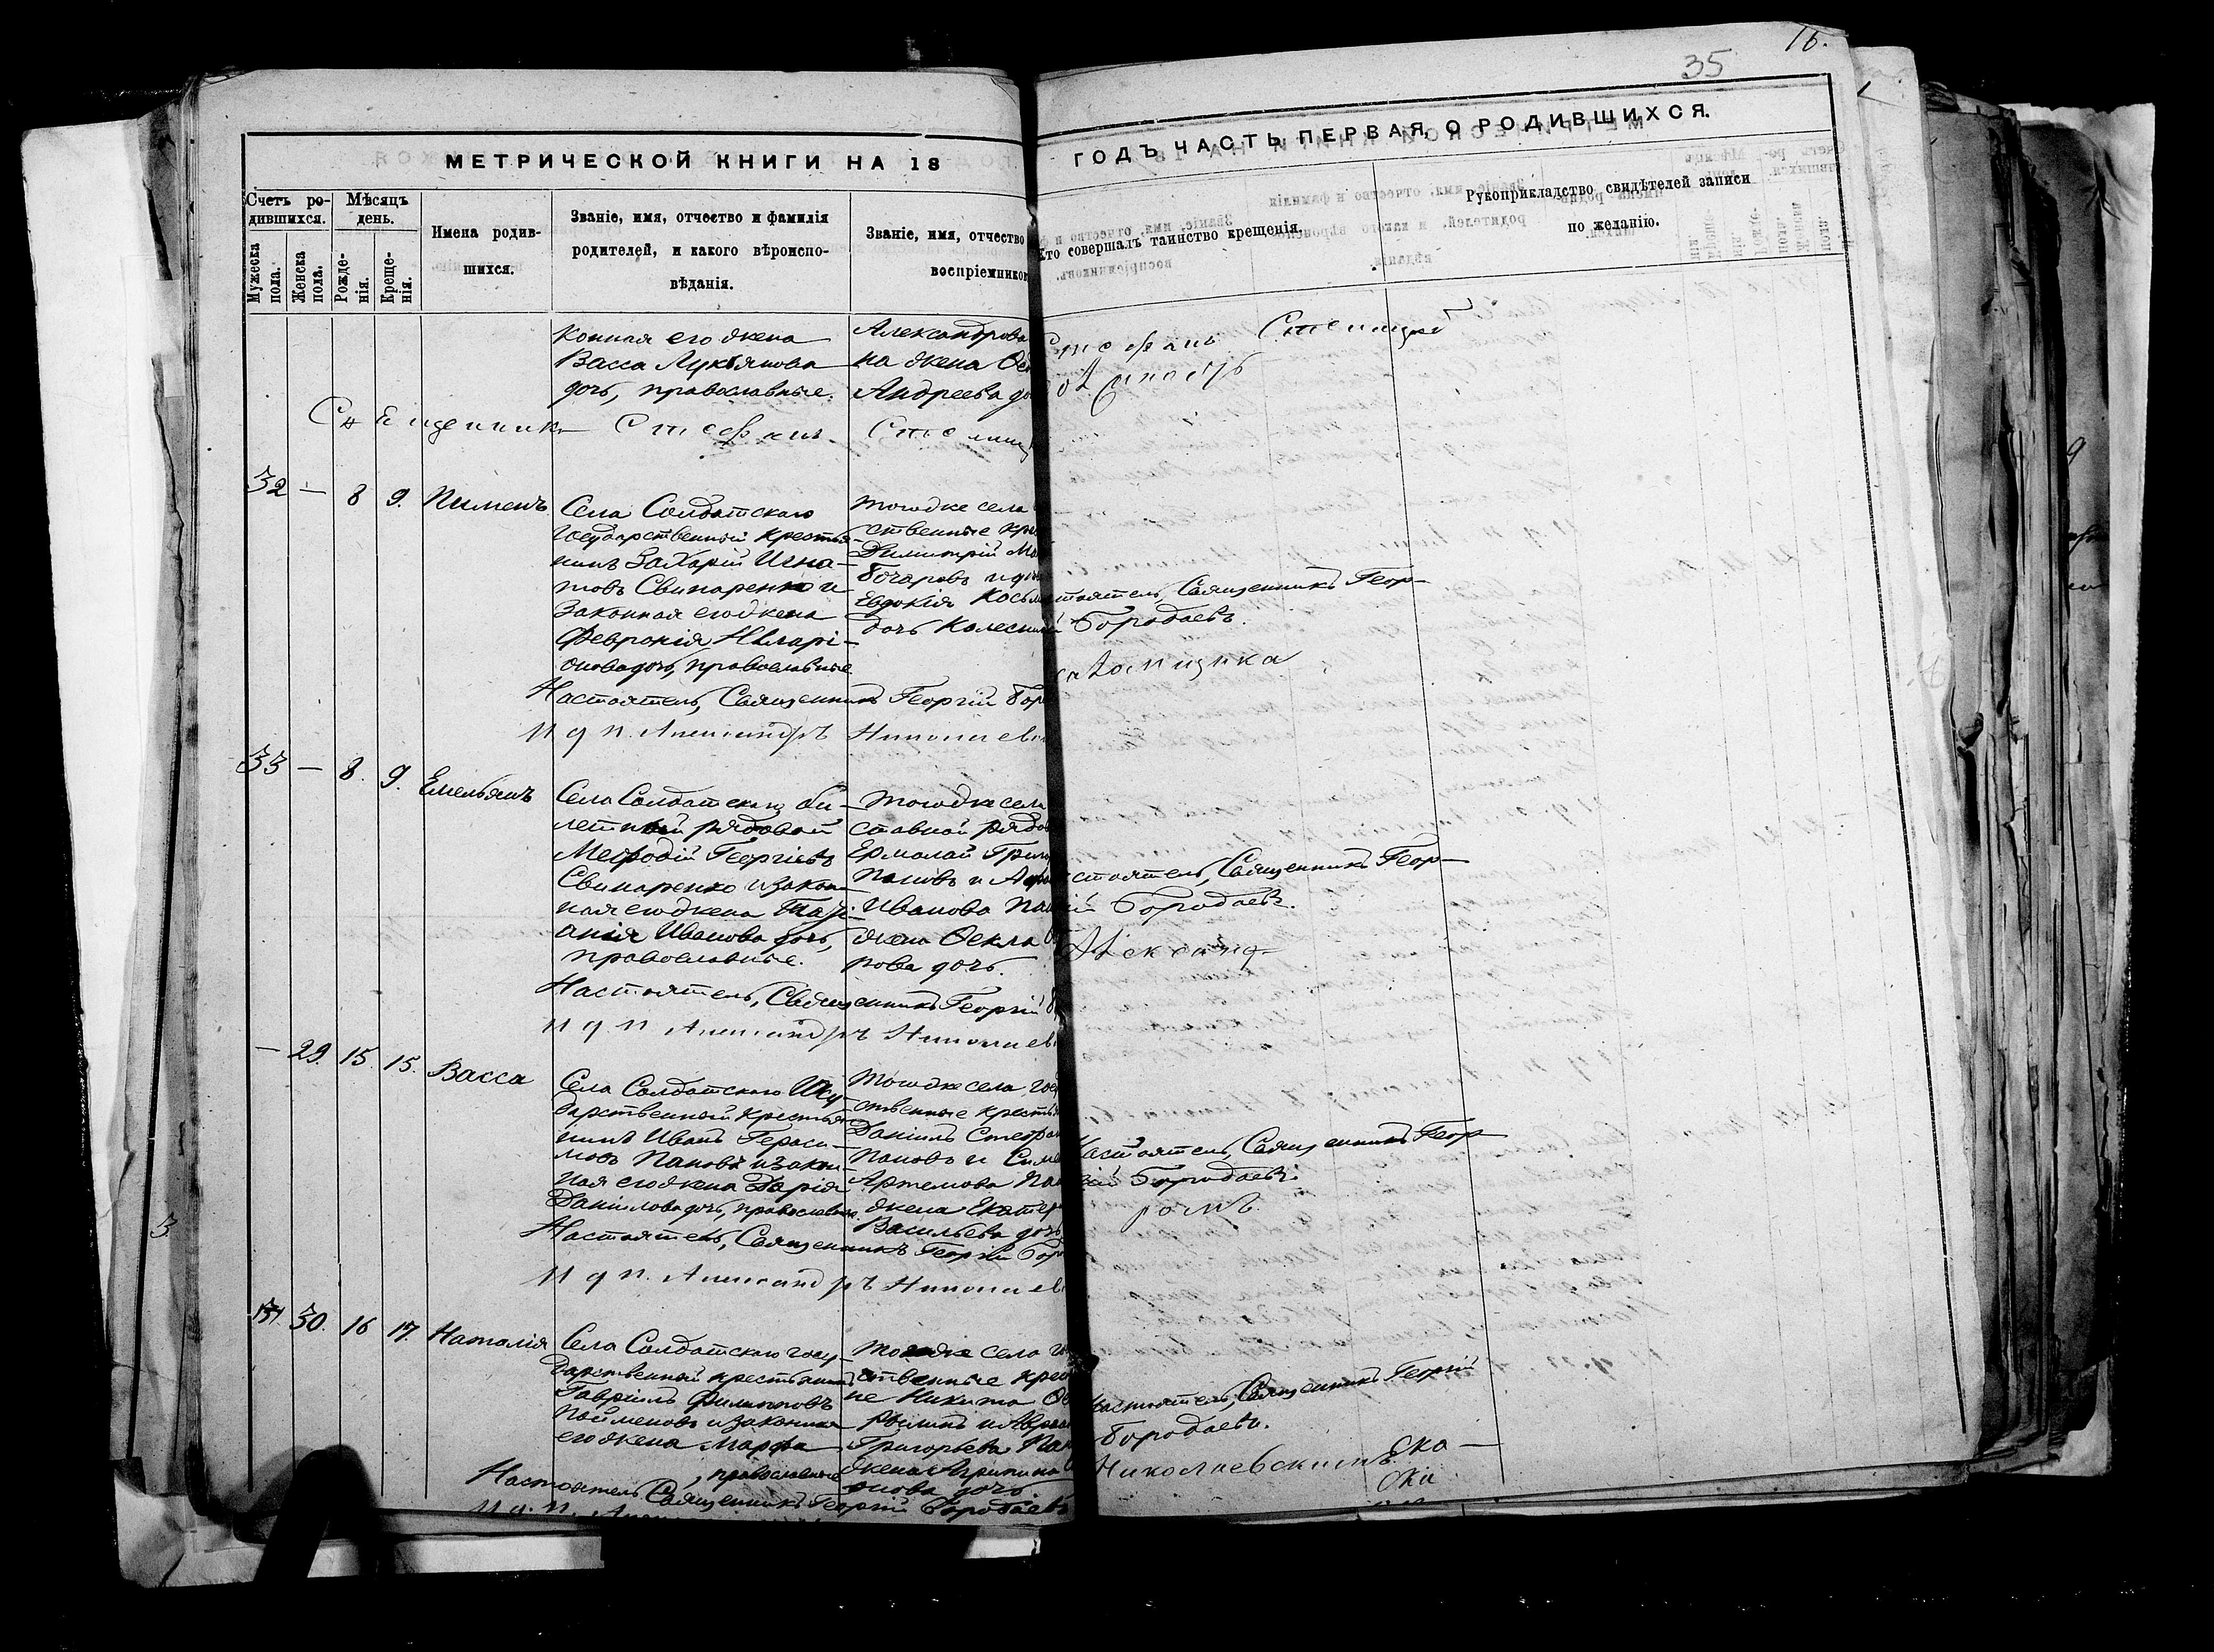 16.
35
МЕТРИЧЕСКОЙ КНИГИ НА 18
ГОДЪ ЧАСТЬ ПЕРВАЯ, О РОДИВШИХСЯ.
Счетъ ро-
дившихся.
Мужеска
пола.
Женска
пола.
Мѣсяцъ
день.
Рожде-
нія.
Креще-
нія.
Имена родив-
шихся.
Званіе, имя, отчество и фамилія
родителей, и какого вѣроиспо-
вѣданія.
Званіе, имя, отчество
воспріемников
Кто совершалъ таинство крещенія.
Рукоприкладство свидѣтелей записи
по желанію.
конная его жена
Васса Лукьянова
дочь, православные.
Александрова
на жена
Андреева до
Стефанъ
Священникъ Стефанъ
32 — 8 9. Пименъ
Села Солдатскаго
государственный крестья-
нинъ Захарій Игна-
товъ Свинаренко и
законная его жена
Февронія Иларі-
онова дочь, православные
тогоже села
ственные кре
Димитрій
Бочаровъ и
Евдокія Косьм
дочь Колесни
тоятель, Священникъ Геор-
Бородаевъ.
Настоятель, Священникъ Георгій Бор
И д п. Александръ Николаев
33 — 8. 9. Емельянъ
Села Солдатскаго би-
летный рядовой
Мефодій Георгіевъ
Свинаренко и закон-
ная его жена Тать-
янія Иванова дочь,
православные.
тогоже села
ставной рядов
Ермолай Григ
Пановъ и
Иванова Пан
жена Ѳекла
рова дочь.
стоятель, Священникъ Геор-
ій Бородаевъ.
Настоятель, Священникъ Георгій
И д п Александръ Николаев
— 29. 15. 15. Васса
Села Солдатскаго госу-
дарственный крестья-
нинъ Иванъ Гераси-
мовъ Пановъ и закон-
ная его жена Дарія
Даніилова дочь, православные
тогоже села гос
ственные кресть
Даніилъ Стефан
Пановъ и
Артемова Пан
жена Екатер
Васильева дочь
Настоятель, Священникъ Геор-
гій Бородаевъ.
Настоятель, Священникъ Георгій Бор
И д п. Александръ Николаев
30. 16 17. Наталія
Села Солдатскаго госу-
дарственный крестьянинъ
Гавріилъ Филипповъ
и законная
его жена Марфа
, православные
тогоже села
ственные крес
не Никита
Григорьева Пан
жена Агрипина
онова дочь
Настоятель, Священникъ Георгій
Бородаевъ.
Николаевскимъ
Ека-
Настоятель Священникъ Георгій Бородаевъ
И д. п.